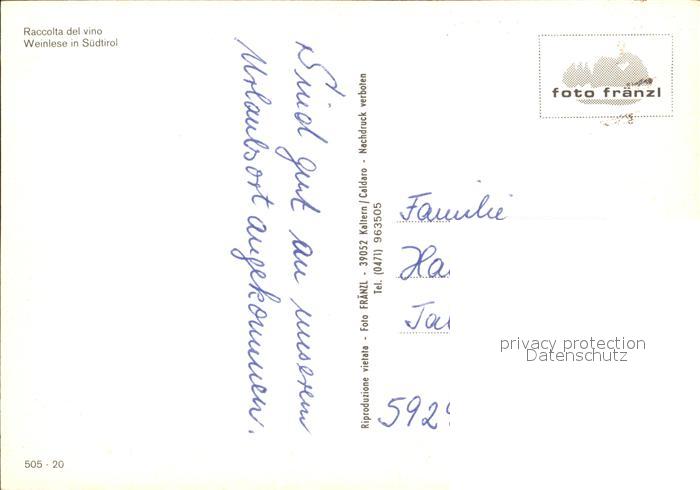 Raccolta del vino
Weinlese in Südtirol
Sind gut an unserem
Urlaubsort angekommen.
Riproduzione vietata - Foto FRÄNZL - 39052 Kaltern/Caldaro - Nachdruck verboten
Tel. (0471) 963505
foto fränzl
Familie
Ha
privacy protection
Datenschutz
592
505 - 20